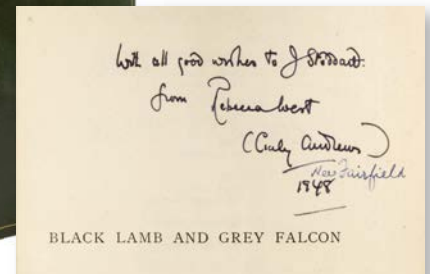 With all good wishes to J Stoddart.
from Rebecca West
(Cicily Andrews)
New Fairfield
1948
BLACK LAMB AND GREY FALCON